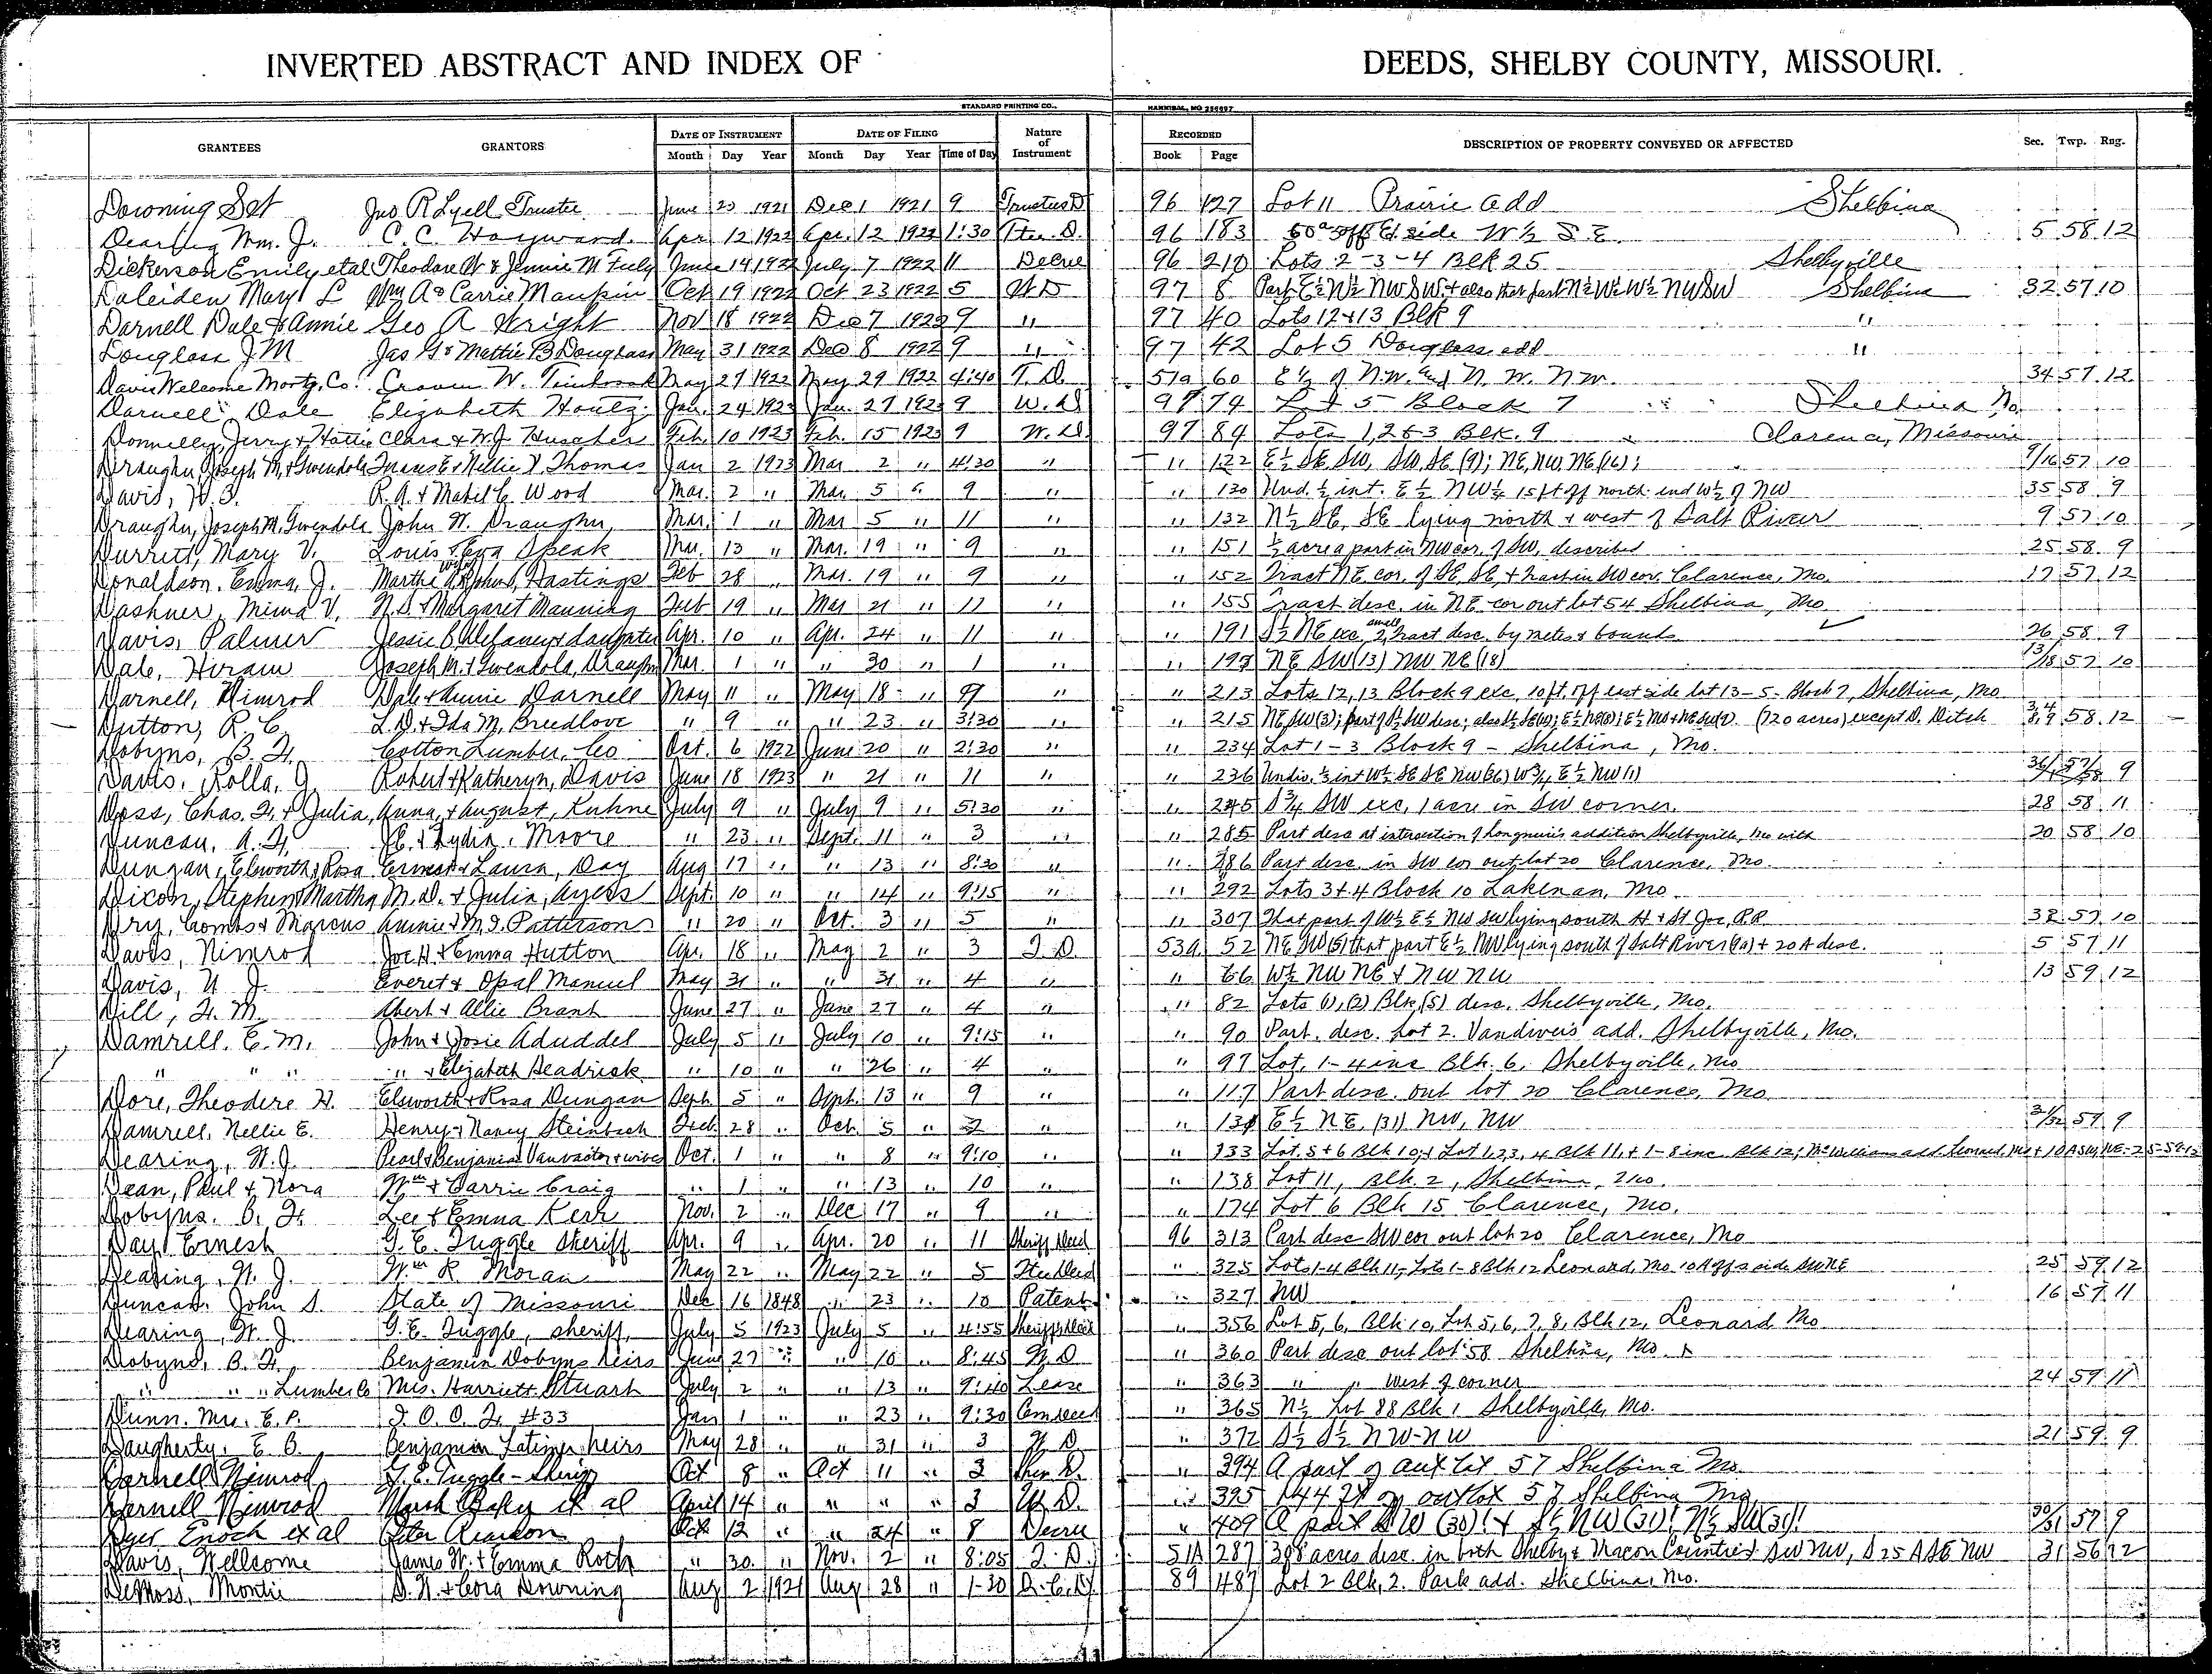 INVERTED ABSTRACT AND INDEX OF DEEDS, SHELBY COUNTY, MISSOURI.
STANDARD PRINTING CO., HANNIBAL, MO 256697
GRANTEES GRANTORS DATE OF INSTRUMENT DATE OF FILING Nature of Instrument RECORDED DESCRIPTION OF PROPERTY CONVEYED OR AFFECTED Sec. Twp. Rng.
Month Day Year Month Day Year Time of Day Book Page
Downing Set Jno R Lyell Trustee June 23 1921 Dec 1 1921 9 Trustees D 96 127 Lot 11 Prairie add Shelbina
Dearing Wm. J. C. C. Hayward. Apr 12 1922 Apr. 12 1922 1:30 96 183 off E side W ½ S E. 5 58 12
Dickerson Emily etal Theodore W & Jennie M Fuly June 14 1922 July 7 1922 11 Decree 96 210 Lots 2-3-4 Blk 25 Shelbyville
Daleiden Mary L Wm A & Carrie Maupin Oct 19 1922 Oct 23 1922 5 W D 97 8 Part E½ W½ NW SW & also that part N½ W½ W½ NW SW Shelbina 32 57 10
Darnell Dale & Annie Geo A Wright Nov 18 1922 Dec 7 1922 9 " 97 40 Lots 12 & 13 Blk 9 "
Douglass J M Jas G & Mattie B Douglass May 31 1922 Dec 8 1922 9 " 97 42 Lot 5 Douglass add "
Davis Welcome Mortg. Co. Craven W. May 27 1922 May 29 1922 4:40 T. D. 51a 60 E ½ of N.W. and N. W. N.W. 34 57 12
Darnell Dale Elizabeth Houtz Jan. 24 1923 Jan. 27 1923 9 W. D 97 74 Lot 5 Block 7 Shelbina Mo.
Donnelly, Jerry & Hattie Clara & W.J. Huscher Feb. 10 1923 Feb. 15 1923 9 W. D. 97 84 Lots 1, 2 & 3 Blk. 9 Clarence, Missouri
Draughn, Joseph M. & Gwendola Francis E & Nellie V. Thomas Jan 2 1923 Mar 2 " 4:30 " " 122 E½ SE SW, SW SE (9); NE, NW, NE (16); 9/16 57 10
Davis, R. A. & Mabel C. Wood Mar. 2 " Mar. 5 " 9 " " 130 Und. ½ int. E ½ NW¼ 15 ft off north end W½ of NW 35 58 9
Draughn, Joseph M. Gwendola John W. Draughn, Mar. 1 " Mar 5 " 11 " " 132 N½ SE, SE lying north & west of Salt River 9 57 10
Durrett, Mary V. Louis & Eva Speak Mar. 13 " Mar. 19 " 9 " " 151 ½ acre a part in NW cor. of SW, described 25 58 9
Donaldson, Emma, J. Martha A & John S, Hastings Feb 28 " Mar. 19 " 9 " " 152 Tract NE cor. of SE, SE, & tract in SW cor. Clarence, Mo. 17 57 12
Dashner, Mima V. N. S. & Margaret Manning Feb 19 " Mar 21 " 11 " " 155 Tract desc. in NE cor out lot 54 Shelbina, Mo.
Davis, Palmer Jessie B. Delaney & daughter Apr. 10 " Apr. 24 " 11 " " 191 S½ NE exc. 2 small tract desc. by metes & bounds 26 58 9
Dale, Hiram Joseph M. & Gwendola, Draughn Mar. 1 " " 30 " 1 " " 197 NE SW (13) NW NE (18) 13/18 57 10
Darnell, Nimrod Dale & Annie Darnell May 11 " May 18 " 9 " " 213 Lots 12, 13 Block 9 exc. 10 ft. off east side lot 13 - 5 - Block 7, Shelbina, Mo
Dutton, R. C. L. D. & Ida M, Breedlove " 9 " " 23 " 3:30 " " 215 (720 acres) except D. Ditch 58 12
Dobyns, B. F. Cotton Lumber, Co Oct. 6 1922 June 20 " 2:30 " " 234 Lot 1-3 Block 9 - Shelbina, Mo.
Davis, Rolla, G. Robert & Katheryn, Davis June 18 1923 " 21 " 11 " " 236 Undis. ½ int W½ SE SE NW (36) W¾ E½ NW (1) 36/1 57/58 9
Doss, Chas. F. & Julia, Anna, & August, Kuhne July 9 " July 9 " 5:30 " " 245 S¾ SW exc. 1 acre in SW corner. 28 58 11
Duncan, A. F. & Lydia, Moore " 23 " Sept. 11 " 3 " " 285 Part desc at intersection of Longmire's addition Shelbyville, Mo with 20 58 10
Dungan, Elsworth & Rosa Ernest & Laura, Day Aug 17 " " 13 " 8:30 " " 286 Part desc. in SW cor out lot 20 Clarence, Mo.
Dixon, Stephen & Martha M. D. & Julia, Ayers Sept. 10 " " 14 " 9:15 " " 292 Lots 3 & 4 Block 10 Lakenan, Mo
Dry, Combs & Marcus Annie & M. I. Patterson " 20 " Oct. 3 " 5 " " 307 That part of W½ E½ NW SW lying south H & St Joe, R.R. 32 57 10
Davis, Nimrod Joe H. & Emma Hutton Apr. 18 " May 2 " 3 T. D. 53a 52 NE SW (5) that part E½ NW lying south of Salt River + 20 A desc. 5 57 11
Davis, U. J. Everet & Opal Manuel May 31 " " 31 " 4 " " 66 W½ NW NE & NW NW 13 59 12
Dill, F. M. Abert & Allie Brant June 27 " June 27 " 4 " " 82 Lots (1), (2) Blk, (5) desc. Shelbyville, Mo.
Damrell. E. M. John & Josie Aduddel July 5 " July 10 " 9:15 " " 90 Part. desc. Lot 2. Vandiver's add. Shelbyville, Mo.
" " " " & Elizabeth Headrick " 10 " " 26 " 4 " " 97 Lot, 1-4 inc Blk. 6, Shelbyville, Mo
Dore, Theodore H. Elsworth & Rosa Dungan Sept. 5 " Sept. 13 " 9 " " 117 Part desc. out lot 20 Clarence, Mo.
Damrell, Nellie E. Henry & Nancy Steinbach Feb. 28 " Oct. 5 " 2 " " 131 E½ NE, (31) NW, NW 31/32 59 9
Dearing, W. J. Pearl & Benjamin Vanvactor & wives Oct. 1 " " 8 " 9:10 " " 133 Lot. 5 + 6 Blk 10, & Lot 1, 2, 3, 4 Blk 11, & 1-8 inc. Blk 12, McWilliams add. Leonard, Mo + 10 A SW, NE - 25-59-12
Dean, Paul & Nora Wm & Carrie Craig " 1 " " 13 " 10 " " 138 Lot 11, Blk. 2, Shelbina, Mo.
Dobyns. B. F. Lee & Emma Kerr Nov. 2 " Dec 17 " 9 " " 174 Lot 6 Blk 15 Clarence, Mo.
Day, Ernest G. E. Tuggle Sheriff Apr. 9 " Apr. 20 " 11 Sheriff Deed 96 313 Part desc SW cor out lot 20 Clarence, Mo
Dearing, W. J. Wm R Moran May 22 " May 22 " 5 " 325 Lots 1-4 Blk 11, Lots 1-8 Blk 12 Leonard, Mo. 10 A off s side SW NE 25 59 12
Duncan. John S. State of Missouri Dec 16 1848 " 23 " 10 Patent " 327 NW 16 57 11
Dearing, W. J. G. E. Tuggle, sheriff, July 5 1923 July 5 " 4:55 Sheriff's Deed " 356 Lot 5, 6, Blk 10, Lot 5, 6, 7, 8, Blk 12, Leonard Mo
Dobyns, B. F. Benjamin Dobyns heirs June 27 " " 10 " 8:45 W. D " 360 Part desc out lot 58 Shelbina, Mo.
" " " Lumber Co Mrs. Harriett Stuart July 2 " " 13 " 9:40 Lease " 363 " " West of corner 24 59 11
Dunn. Mrs. E. P. I. O. O. F. #33 Jan 1 " " 23 " 9:30 Cem Deed " 365 N½ Lot 88 Blk 1 Shelbyville, Mo.
Daugherty, E. B. Benjamin Latimer heirs May 28 " " 31 " 3 W. D " 372 S½ S½ NW-NW 21 59 9
Darnell Nimrod G. E. Tuggle - Sheriff Oct 8 " Oct 11 " 3 Sher D. " 394 A part of out lot 57 Shelbina Mo.
Darnell Nimrod et al April 14 " " " " 3 W. D. " 395 144 ft of outlot 57 Shelbina Mo
Dyer Enoch et al Peter Reardon Oct 12 " " 24 " 8 Decree " 409 A part SW (30) & S½ NW (31) N½ SW (31) 30/31 57 9
Davis, Wellcome James W. & Emma Roth " 30 " Nov. 2 " 8:05 T. D. 51A 287 398 acres desc. in both Shelby & Macon Counties SW NW, S 25 A SE NW 31 56 12
DeMoss, Montie S. W. & Cora Downing Aug 2 1921 Aug 28 " 1-30 Q. C. D. 89 487 Lot 2 Blk. 2. Park add. Shelbina, Mo.